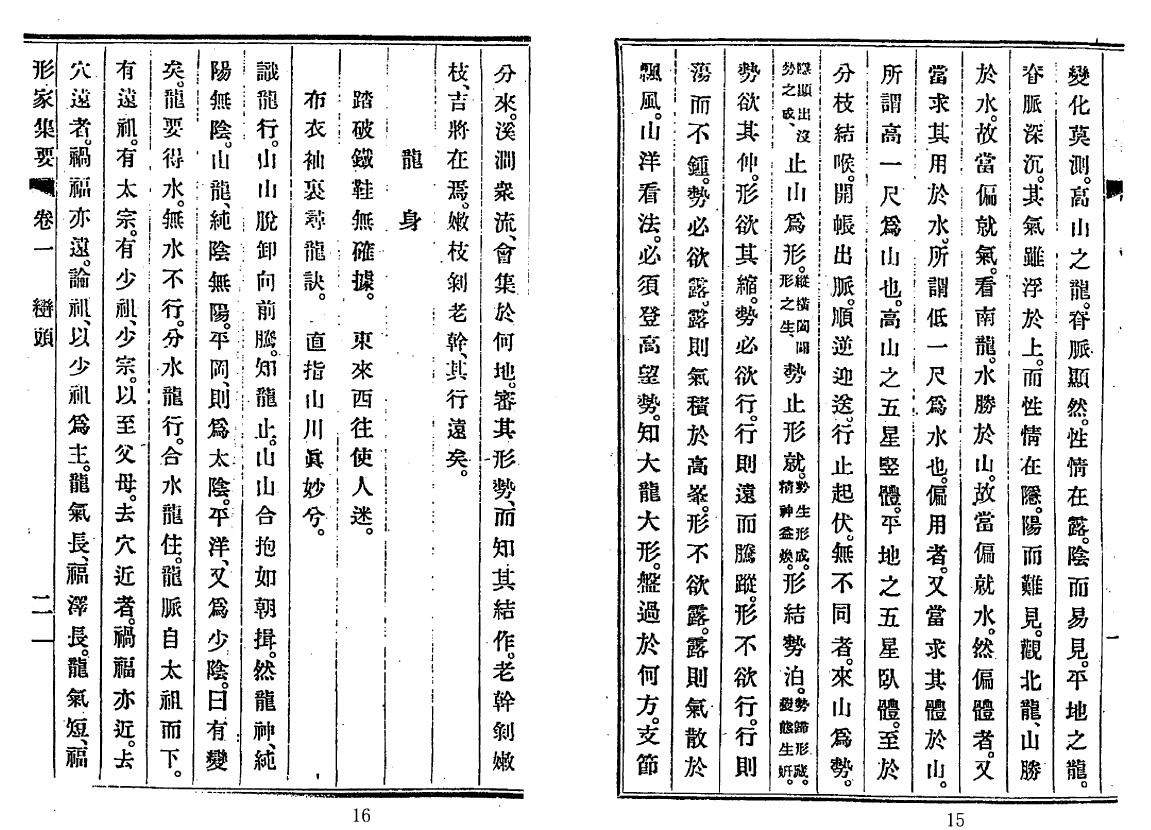 變化莫測。高山之龍。脊脈顯然。性情在露。陰而易見。平地之龍。
脊脈深沉。其氣雖浮於上。而性情在隱。陽而難見。觀北龍、山勝
於水。故當偏就氣。看南龍。水勝於山。故當偏就水。然偏體者。又
當求其用於水。所謂低一尺爲水也。偏用者。又當求其體於山。
所謂高一尺爲山也。高山之五星豎體。平地之五星臥體。至於
分枝結喉。開帳出脈。順逆迎送。行止起伏。無不同者。來山爲勢。
隱顯出沒勢之成、止山爲形。縱橫闔闢形之生、勢止形就。勢生形成。精神益煥。形結勢泊。勢歸形成。變態生姸。
勢欲其伸。形欲其縮。勢必欲行。行則遠而騰蹤。形不欲行。行則
蕩而不鍾。勢必欲露。露則氣積於高峯。形不欲露。露則氣散於
飄風。山洋看法。必須登高望勢。知大龍大形。盤過於何方。支節
分來。溪澗衆流、會集於何地。審其形勢、而知其結作。老幹剝嫩
枝、吉將在焉。嫩枝剝老幹、其行遠矣。
龍身
踏破鐵鞋無確據。 東來西往使人迷。
布衣袖裏尋龍訣。 直指山川眞妙兮。
識龍行。山山脫卸向前騰。知龍止。山山合抱如朝揖。然龍神、純
陽無陰。山龍、純陰無陽。平岡、則爲太陰。平洋、又爲少陰。曰有變
矣。龍要得水。無水不行。分水龍行。合水龍住。龍脈自太祖而下。
有遠祖。有太宗。有少祖、少宗。以至父母。去穴近者。禍福亦近。去
穴遠者。禍福亦遠。論祖、以少祖爲主。龍氣長、福澤長。龍氣短、福
形家集要 卷一 巒頭 二一
15
16